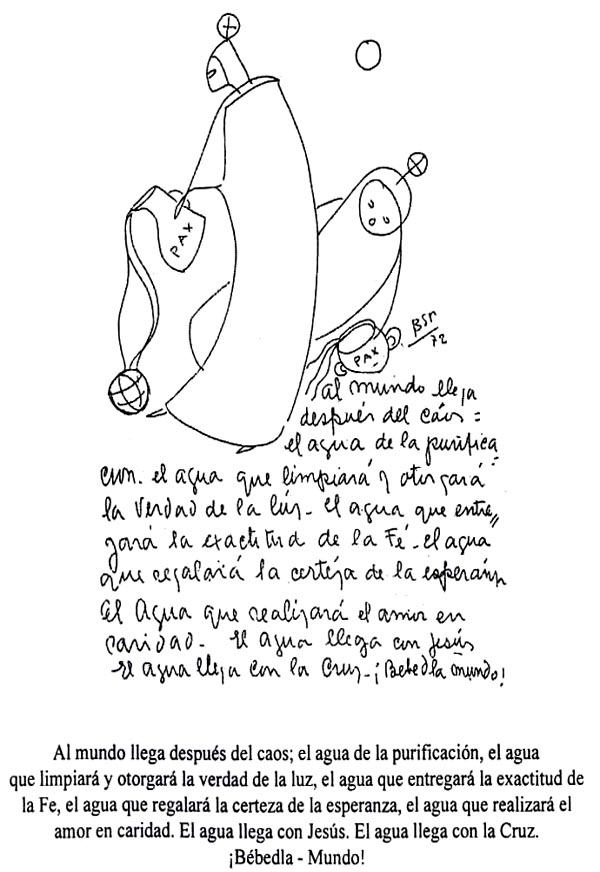 PAX
BSP
72
PAX
Al mundo llega
después del cáos =
el agua de la purifica=
ción. el agua que limpiará y otorgará
la Verdad de la lúz - el agua que entre,,
gará la exactitud de la Fé - el agua
que regalará la certeza de la esperanza
el Agua que realizará el amor en
caridad - El agua llega con Jesús
El agua llega con la Cruz - ¡Bebedla mundo!
Al mundo llega después del caos; el agua de la purificación, el agua
que limpiará y otorgará la verdad de la luz, el agua que entregará la exactitud de
la Fe, el agua que regalará la certeza de la esperanza, el agua que realizará el
amor en caridad. El agua llega con Jesús. El agua llega con la Cruz.
¡Bébedla - Mundo!